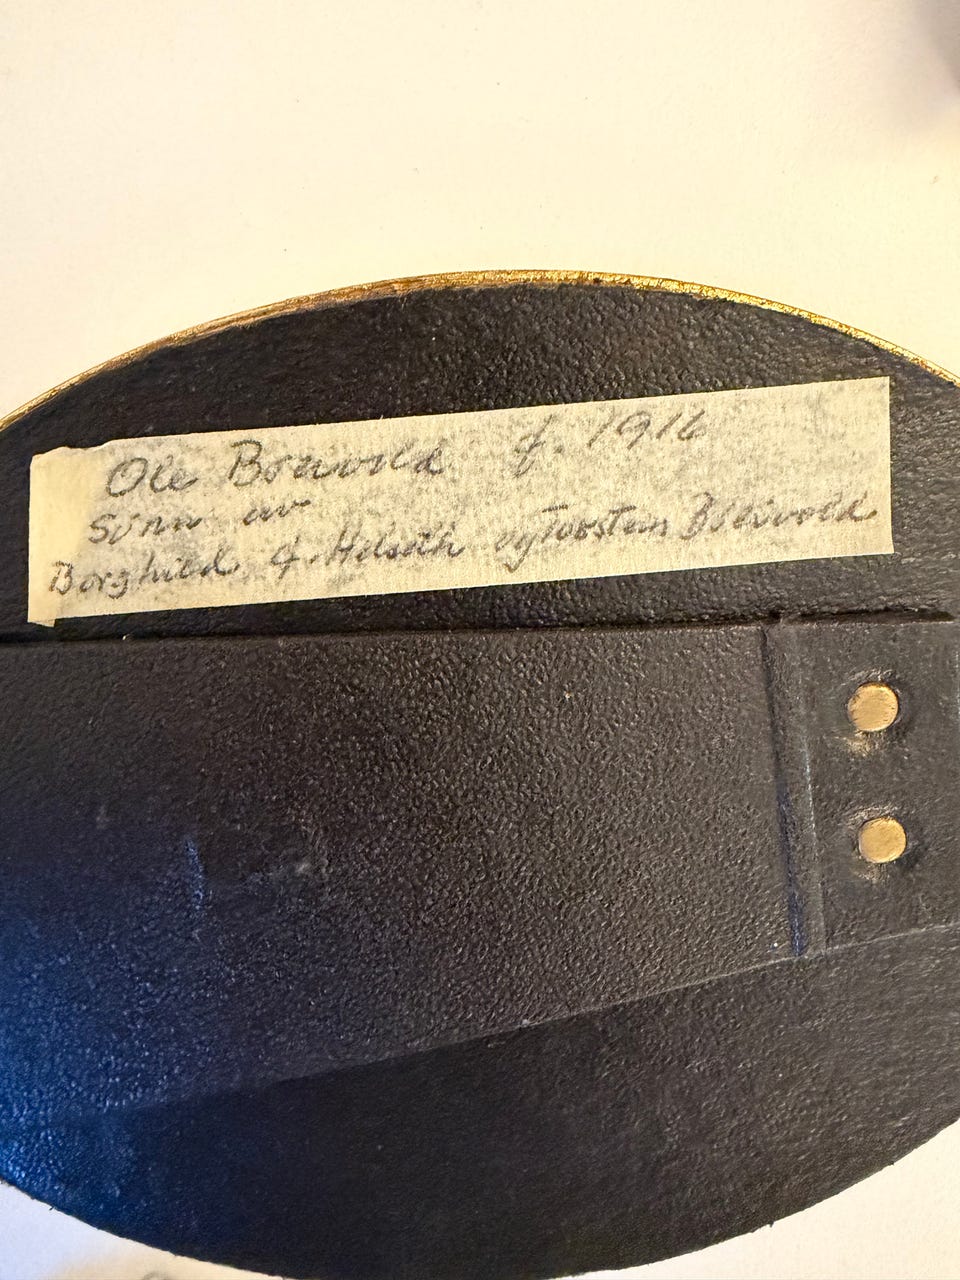 Ole f. 1916
Sønn av
Borghild f. Helseth og Torstein